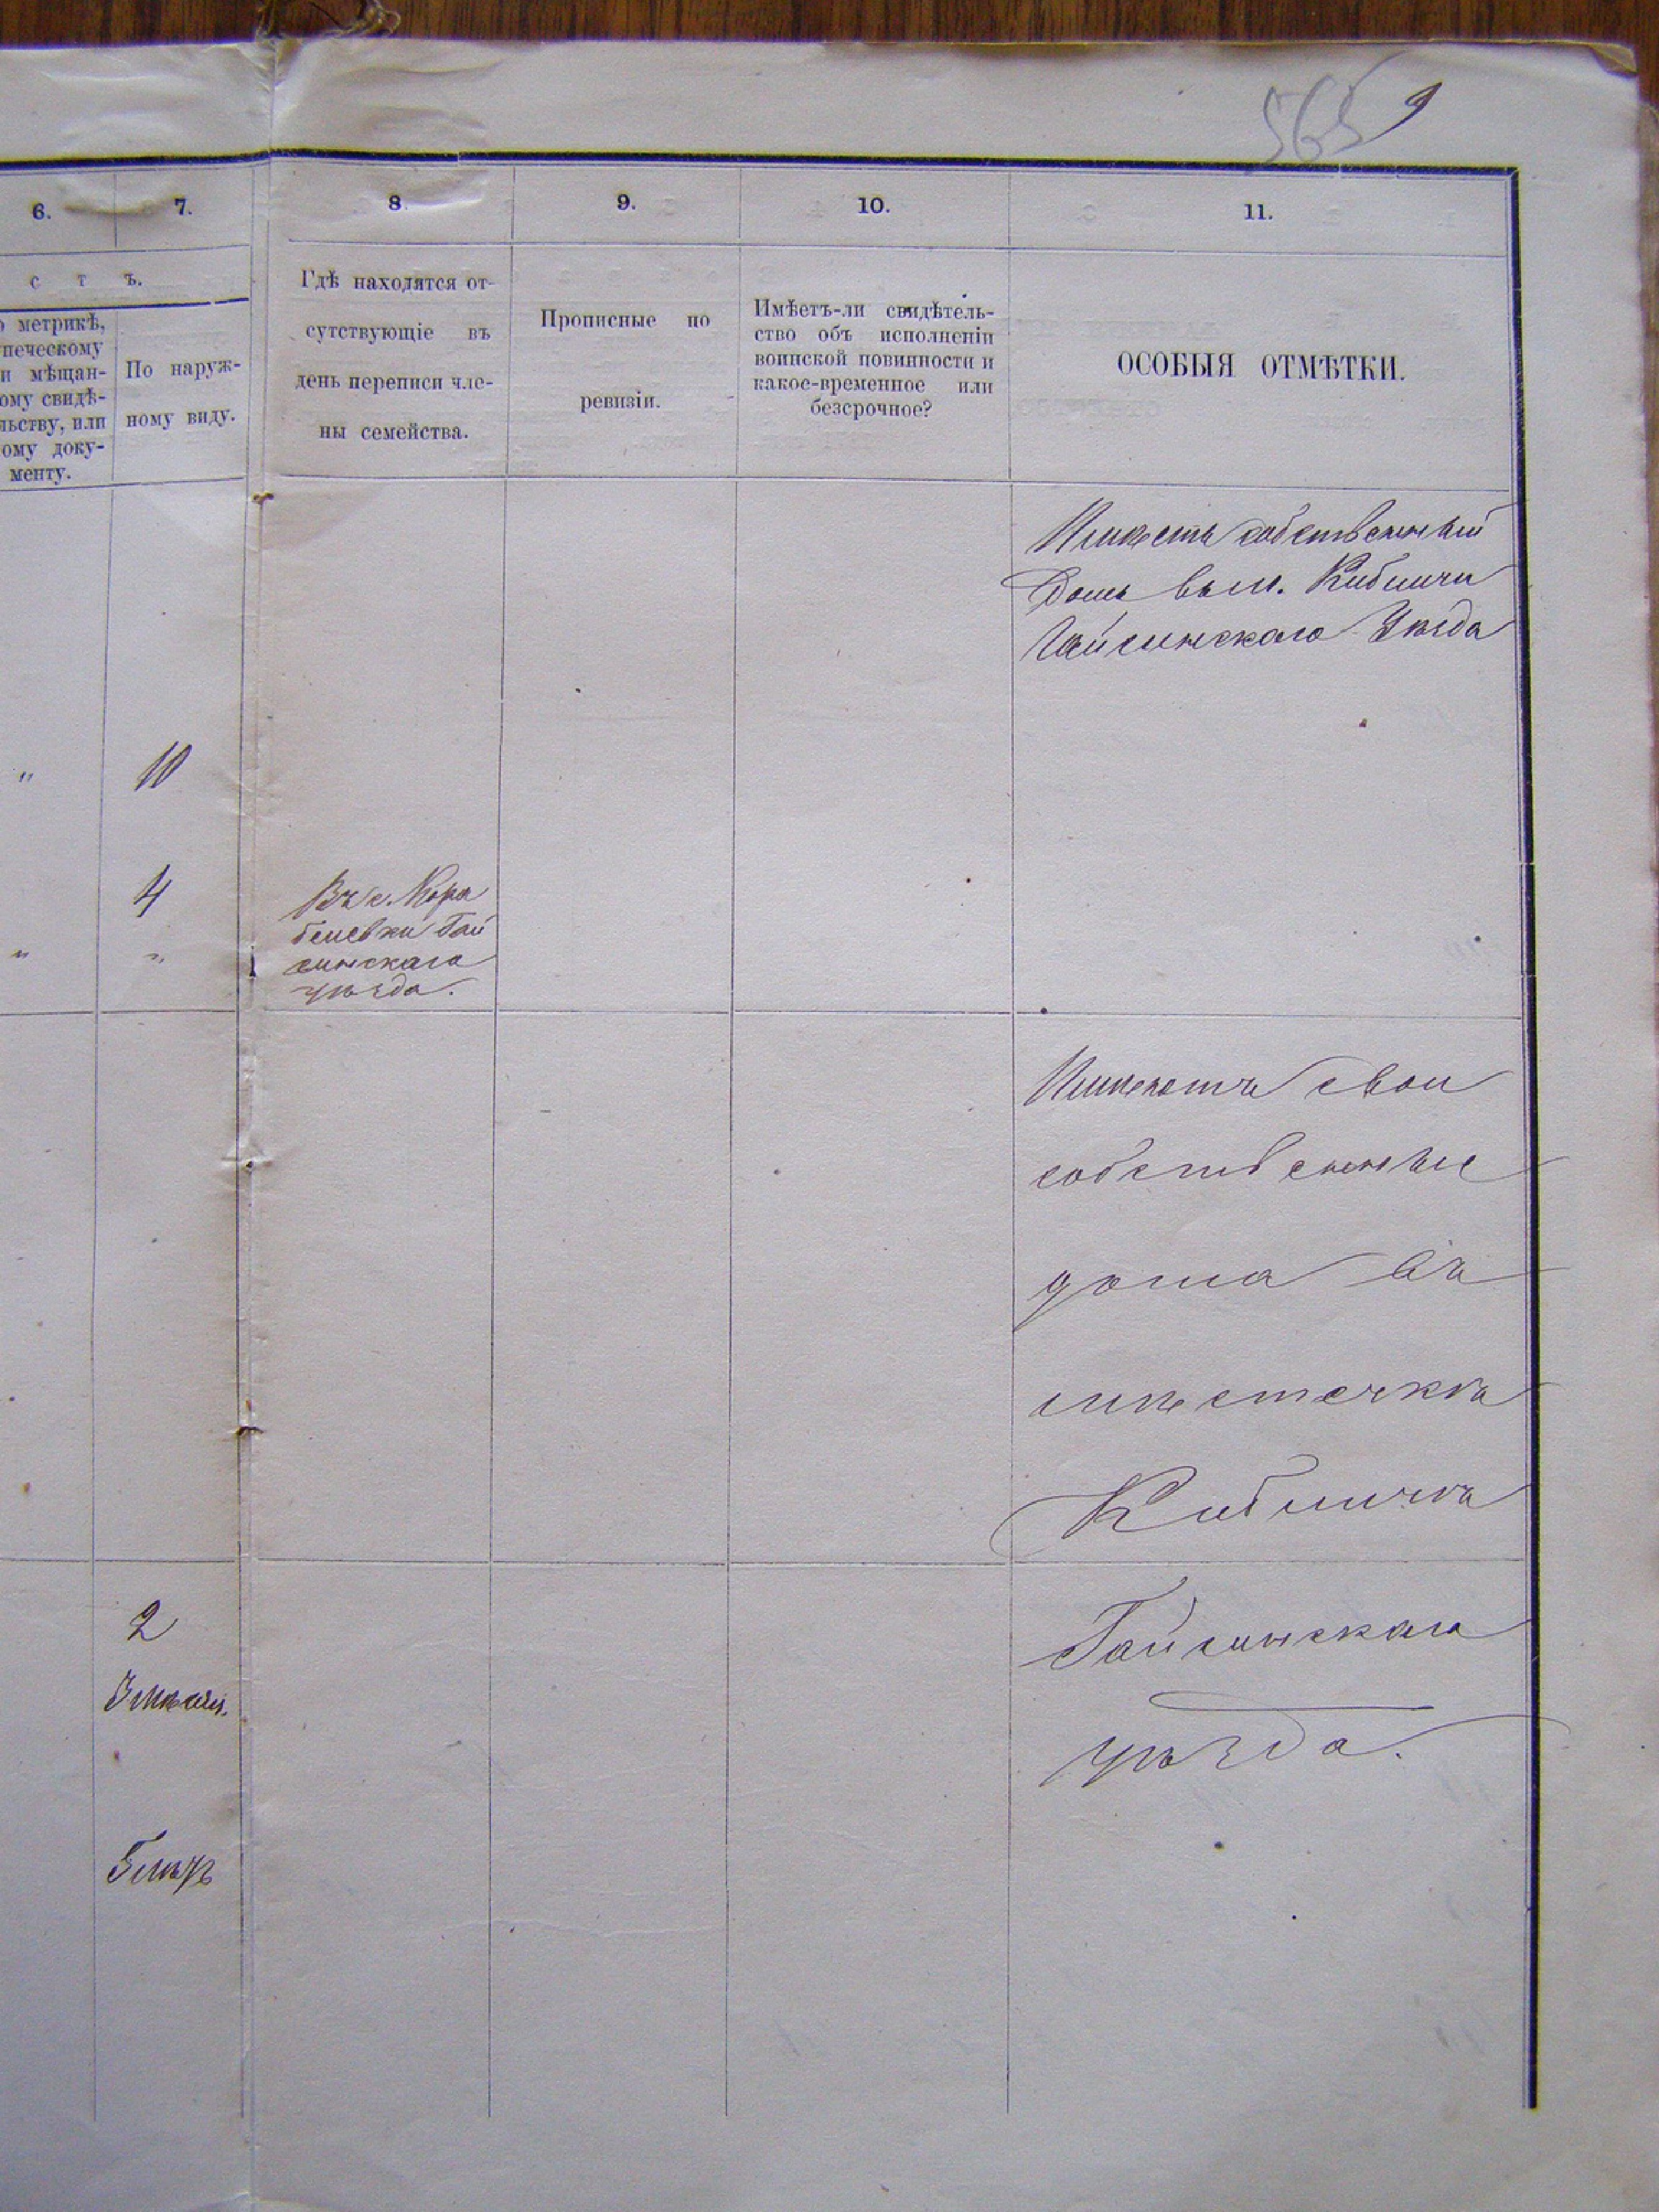 565 9
6. 7. 8 9. 10. 11.
с т ъ.
о метрикѣ,
печескому
и мѣщан-
ому свидѣ-
льству, или
ому доку-
менту.
По наруж-
ному виду.
Гдѣ находятся от-
сутствующіе въ
день переписи чле-
ны семейства.
Прописные по
ревизіи.
Имѣетъ-ли свидѣтель-
ство объ исполненіи
воинской повинности и
какое-временное или
безсрочное?
ОСОБЫЯ ОТМѢТКИ.
Имѣетъ собственный
Домъ въ м. Кибличи
Гайсинскаго Уѣзда
" 10
4
" "
Въ с. Кора
белевки Гай
синскаго
уѣзда.
Имѣютъ свои
собственные
дома въ
мѣстечкѣ
Кибличѣ
Гайсинскаго
уѣзда.
2